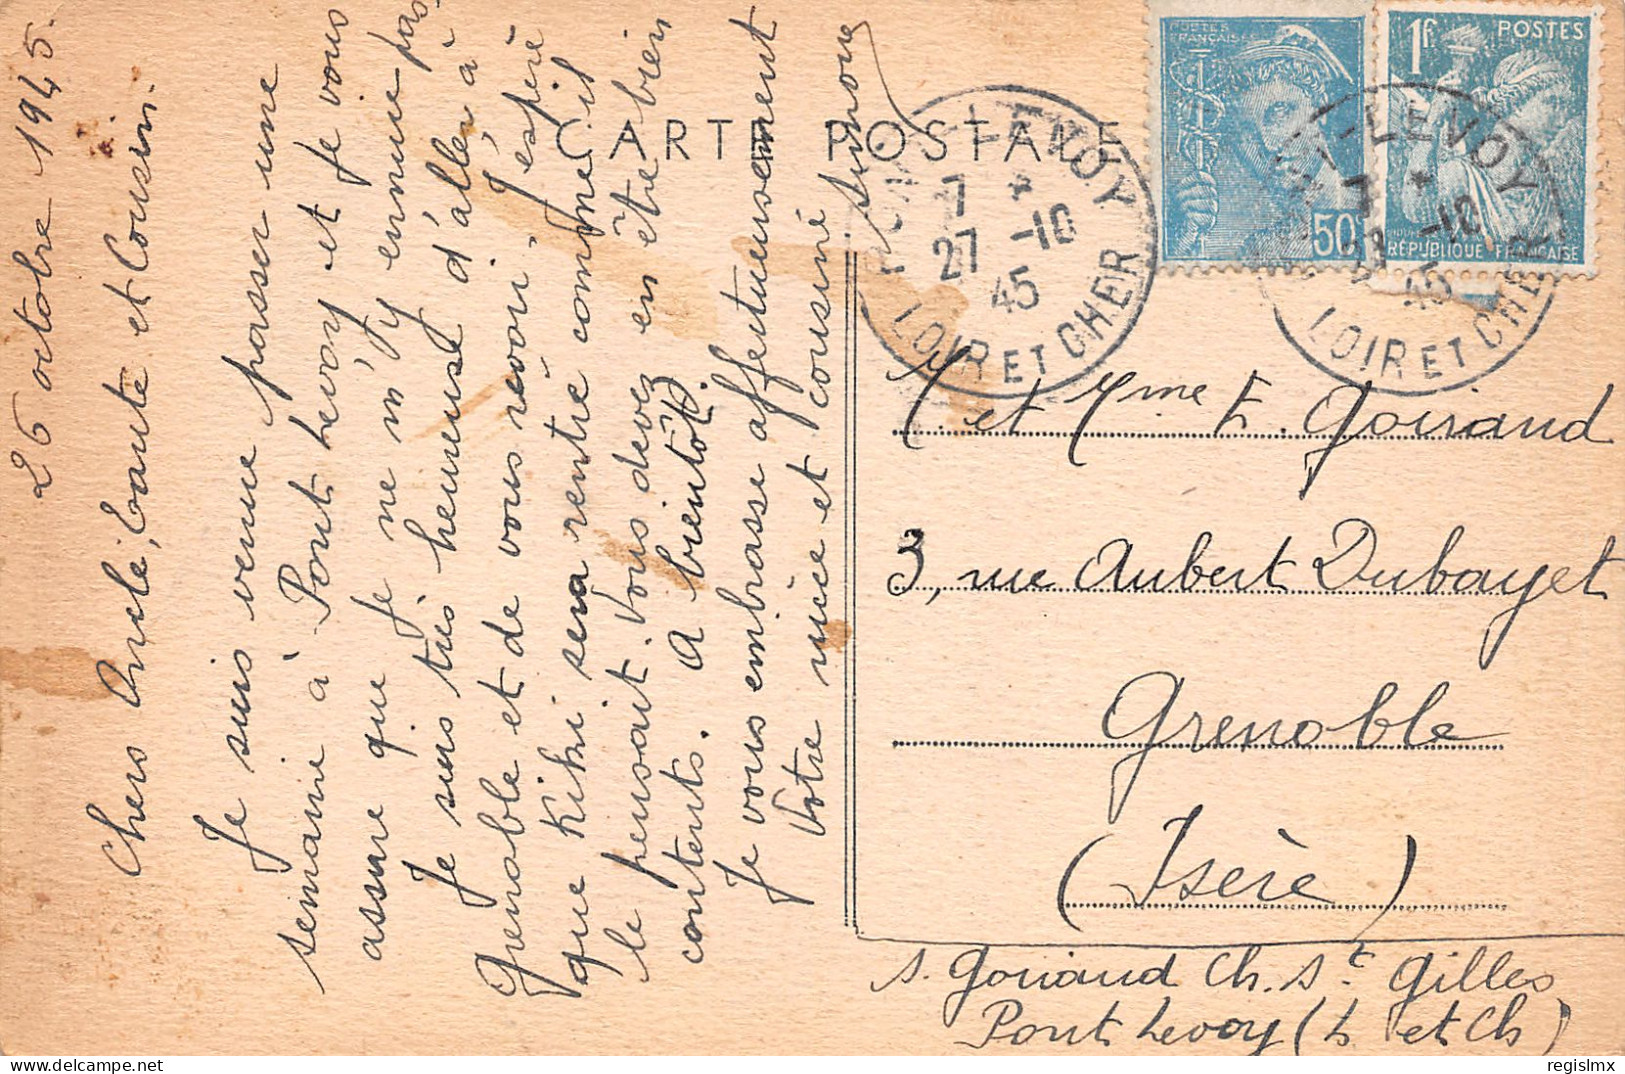 26 octobre 1945.
Chers Oncle, tante et Cousin.
Je suis venue passer une
semaine à Pont Levoy et je vous
assure que je ne m'y ennuie pas.
Je suis très heureuse d'aller à
Grenoble et de vous revoir. J'espère
que Kiki sera rentré comme il
le pensait. Vous devez en être bien
contents. A bientôt
Je vous embrasse affectueusement
Votre nièce et cousine
Simone
CARTE POSTALE
PONT-LEVOY
7 *
27 -10
45
LOIR ET CHER
POSTES
FRANÇAISES
50c
1f POSTES
RÉPUBLIQUE FRANÇAISE
-LEVOY
7 *
-10
45
LOIR ET CHER
M. et Mme E. Goiraud
3, rue Aubert Dubayet
Grenoble
(Isère)
S. Goiraud Ch. St Gilles
Pont Levoy (L et Ch)
regislmx